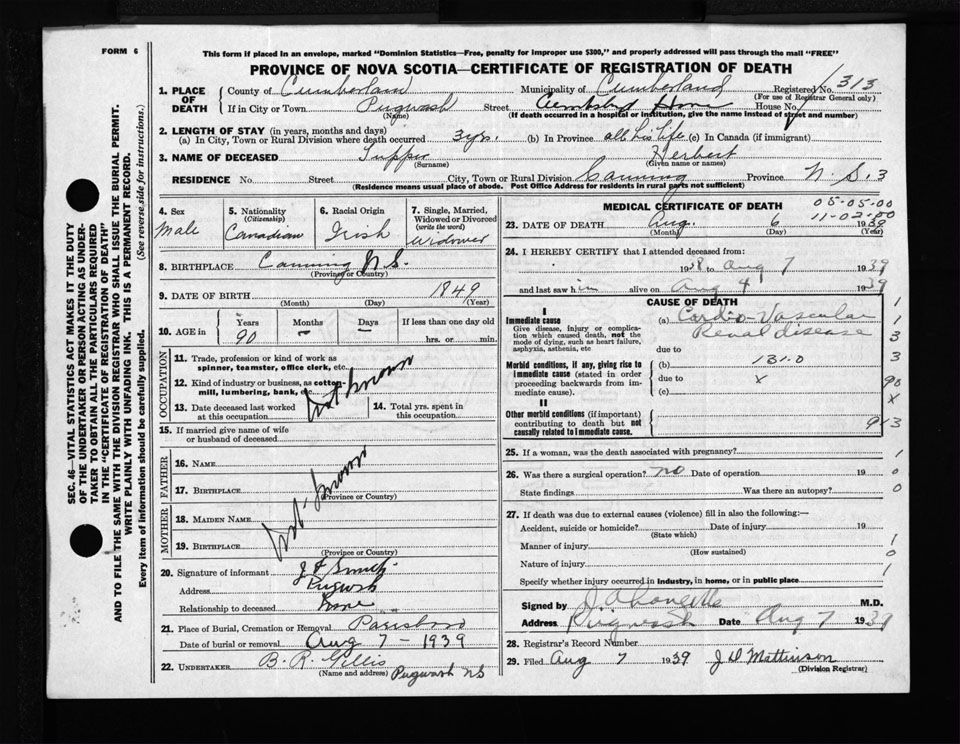 FORM 6
This form if placed in an envelope, marked "Dominion Statistics—Free, penalty for improper use $300," and properly addressed will pass through the mail "FREE"
PROVINCE OF NOVA SCOTIA—CERTIFICATE OF REGISTRATION OF DEATH
1. PLACE OF DEATH County of Cumberland Municipality of Cumberland Registered No. 313
(For use of Registrar General only)
If in City or Town Pugwash Street Home House No.
(Name) (If death occurred in a hospital or institution, give the name instead of street and number)
2. LENGTH OF STAY (in years, months and days)
(a) In City, Town or Rural Division where death occurred 3 yrs. (b) In Province all his life (c) In Canada (if immigrant)
3. NAME OF DECEASED Tupper Herbert
(Surname) (Given name or names)
RESIDENCE No. Street City, Town or Rural Division Canning Province N.S. 3
(Residence means usual place of abode. Post Office Address for residents in rural parts not sufficient)
4. Sex Male
5. Nationality (Citizenship) Canadian
6. Racial Origin Irish
7. Single, Married, Widowed or Divorced (write the word) Widower
8. BIRTHPLACE Canning N.S.
(Province or Country)
9. DATE OF BIRTH 1849
(Month) (Day) (Year)
10. AGE in Years 90 Months — Days — If less than one day old
hrs. or min.
OCCUPATION
11. Trade, profession or kind of work as spinner, teamster, office clerk, etc.
12. Kind of industry or business, as cotton-mill, lumbering, bank, etc.
Not known
13. Date deceased last worked at this occupation
14. Total yrs. spent in this occupation
15. If married give name of wife or husband of deceased
FATHER
16. NAME
17. BIRTHPLACE
(Province or Country)
Not known
MOTHER
18. MAIDEN NAME
19. BIRTHPLACE
(Province or Country)
20. Signature of informant J F Smith
Address Pugwash
Relationship to deceased None
21. Place of Burial, Cremation or Removal Parrsboro
Date of burial or removal Aug 7 – 1939
22. UNDERTAKER B. R. Gillis
(Name and address) Pugwash NS
MEDICAL CERTIFICATE OF DEATH
05-05-00
11-02-00
23. DATE OF DEATH Aug. 6 1939
(Month) (Day) (Year)
24. I HEREBY CERTIFY that I attended deceased from:
1938 to Aug 7 1939
and last saw him alive on Aug 4 1939
CAUSE OF DEATH
I
Immediate cause
Give disease, injury or complication which caused death, not the mode of dying, such as heart failure, asphyxia, asthenia, etc
(a) Cardio-Vascular
Renal disease
due to
Morbid conditions, if any, giving rise to immediate cause (stated in order proceeding backwards from immediate cause).
(b) 131.0
due to x
(c)
II
Other morbid conditions (if important) contributing to death but not causally related to immediate cause.
1
1
3
3
90
x
9 x 3
25. If a woman, was the death associated with pregnancy? 1
26. Was there a surgical operation? no Date of operation 19 0
State findings Was there an autopsy? 0
27. If death was due to external causes (violence) fill in also the following:—
Accident, suicide or homicide? Date of injury 19
(State which)
Manner of injury 1
(How sustained) 0
Nature of injury 1
Specify whether injury occurred in industry, in home, or in public place
Signed by M.D.
Address Pugwash Date Aug 7 1939
28. Registrar's Record Number
29. Filed Aug 7 1939 J D Mattinson
(Division Registrar)
SEC. 46—VITAL STATISTICS ACT MAKES IT THE DUTY
OF THE UNDERTAKER OR PERSON ACTING AS UNDER-
TAKER TO OBTAIN ALL THE PARTICULARS REQUIRED
IN THE "CERTIFICATE OF REGISTRATION OF DEATH"
AND TO FILE THE SAME WITH THE DIVISION REGISTRAR WHO SHALL ISSUE THE BURIAL PERMIT.
WRITE PLAINLY WITH UNFADING INK. THIS IS A PERMANENT RECORD.
Every item of information should be carefully supplied. (See reverse side for instructions.)